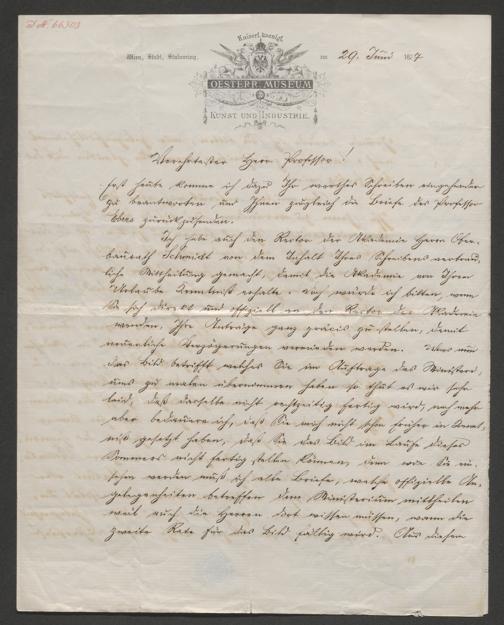 Kaiserl. koenigl.
Wien, Stadt, Stubenring. am 29. Juni 1877
OESTERR. MUSEUM
KUNST UND INDUSTRIE.
Verehrtester Herr Professor!
Erst heute komme ich dazu Ihr werthes Schreiben eingehender
zu beantworten und Ihnen zugleich die Briefe des Professor
Ebers zurückzusenden.
Ich habe auch den Rector der Akademie Herrn Ober-
baurath Schmidt von dem Inhalt Ihres Schreibens vertrau-
liche Mittheilung gemacht, damit die Akademie von Ihrem
Urlaube Kenntniß erhalte; auch würde ich bitten, wenn
Sie sich direkt und offiziell an den Rector der Akademie
wenden, Ihre Anträge ganz präcis zu stellen, damit
neuerliche Verzögerungen vermieden werden. Was nun
das Bild betrifft welches Sie im Auftrage des Ministers,
uns zu malen übernommen haben so thut es mir sehr
leid, daß dasselbe nicht rechtzeitig fertig wird, noch mehr
aber bedauere ich, daß Sie mich nicht schon früher in Kennt-
niß gesetzt haben, daß Sie das Bild im Laufe dieses
Sommers nicht fertig stellen können, denn wie Sie ein-
sehen werden muß ich alle Briefe, welche offizielle An-
gelegenheiten betreffen dem Ministerium mittheilen
weil auch die Herren dort wissen müssen, wann die
zweite Rate für das Bild fällig wird. Aus diesem